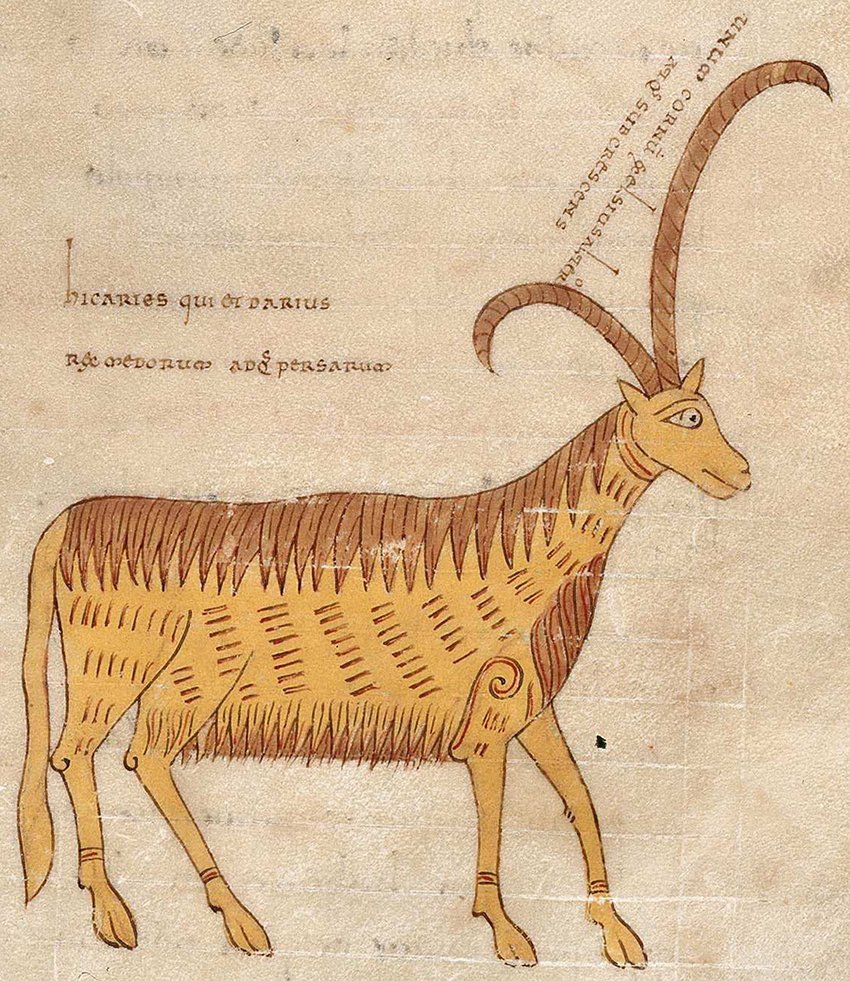 hic aries qui et darius
rex medorum adq persarum
unum cornu excelsius altero
adq subcrescens